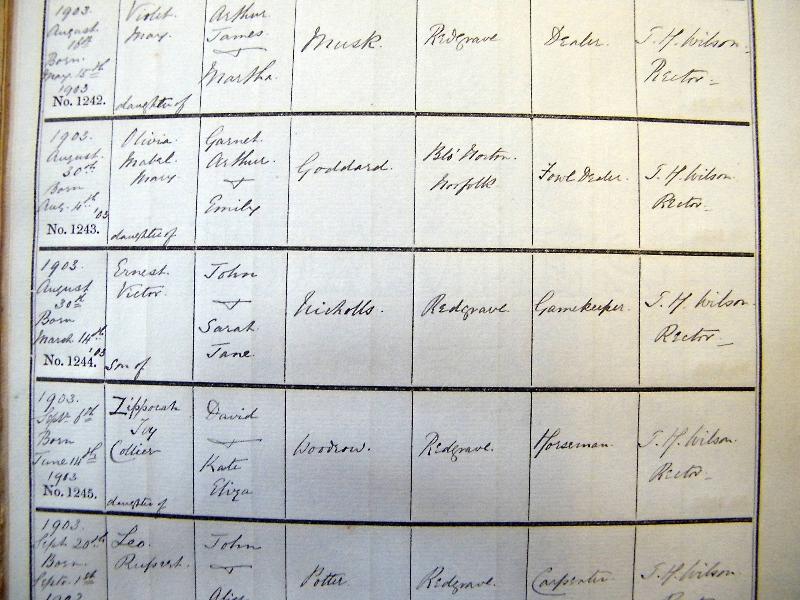 1903.
August
16th
Born
May 15th
1903
No. 1242.
Violet
May.
daughter of
Arthur
James
Martha.
Musk.
Redgrave
Dealer.
T. H. Wilson
Rector
1903.
August
30th
Born
Aug. 4th
'03
No. 1243.
Olivia
Mabel
Mary
daughter of
Garnet
Arthur
Emily
Goddard.
Blo' Norton
Norfolk
Fowl Dealer.
T. H. Wilson
Rector
1903.
August
30th
Born
March 14th
'03
No. 1244.
Ernest
Victor
Son of
John
Sarah
Jane
Nicholls.
Redgrave
Gamekeeper.
T. H. Wilson
Rector
1903.
Sept. 6th
Born
June 14th
1903
No. 1245.
Zipporah
Ivy
Collier
daughter of
David
Kate
Eliza
Woodrow.
Redgrave.
Horseman.
T. H. Wilson
Rector
1903.
Sept. 20th
Born
Sept. 1st
1903
Leo
Rupert.
John
Potter
Redgrave.
Carpenter
T. H. Wilson